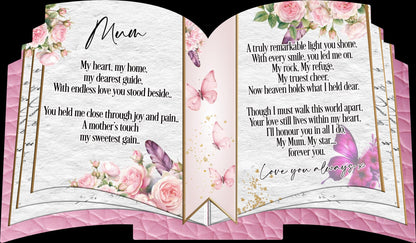 Mum
My heart, my home,
my dearest guide,
With endless love you stood beside..
You held me close through joy and pain..
A mother's touch
my sweetest gain..
A truly remarkable light you shone,
With every smile, you led me on.
My rock, My refuge,
My truest cheer,
Now heaven holds what I held dear.
Though I must walk this world apart,
Your love still lives within my heart,
I'll honour you in all I do,
My Mum, My star...
forever you.
Love you always x